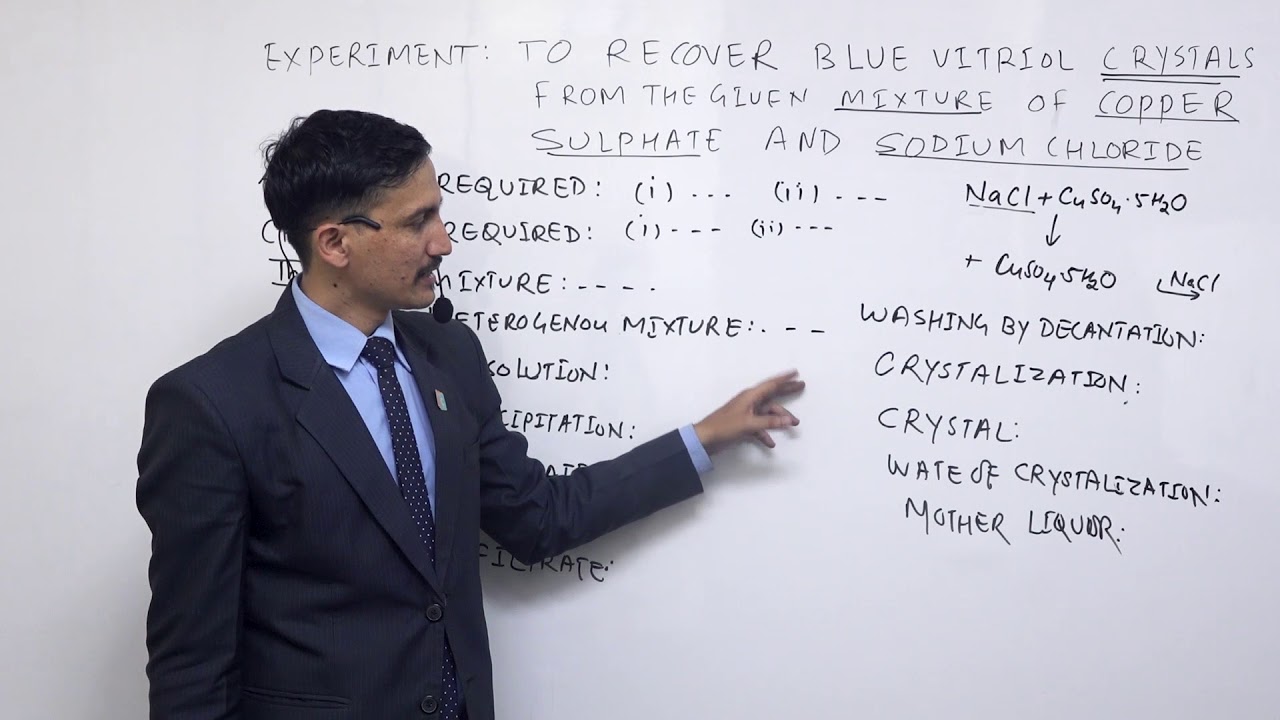 EXPERIMENT: TO RECOVER BLUE VITRIOL CRYSTALS
FROM THE GIVEN MIXTURE OF COPPER
SULPHATE AND SODIUM CHLORIDE
REQUIRED: (i) --- (ii) ---
REQUIRED: (i) --- (ii) ---
MIXTURE: ----.
HETEROGENOU MIXTURE:. --
SOLUTION:
CIPITATION:
FILTRATE:
NaCl + CuSO4·5H2O
↓
+ CuSO4·5H2O NaCl
WASHING BY DECANTATION:
CRYSTALIZATION:
CRYSTAL:
WATE OF CRYSTALIZATION:
MOTHER LIQUOR: